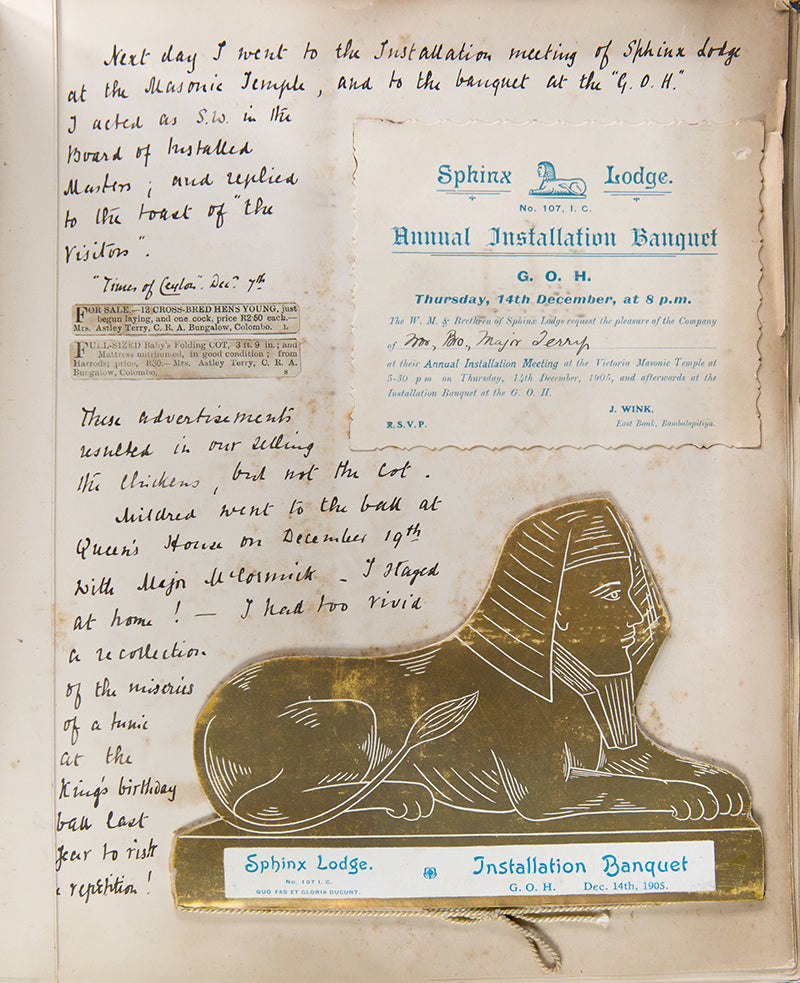 Next day I went to the Installation meeting of Sphinx Lodge
at the Masonic Temple, and to the banquet at the "G. O. H."
I acted as S.W. in the
Board of Installed
Masters; and replied
to the toast of "the
Visitors".
"Times of Ceylon". Decr 7th
FOR SALE.—12 CROSS-BRED HENS YOUNG, just
begun laying, and one cock, price R2·50 each.—
Mrs. Astley Terry, C. R. A. Bungalow, Colombo. L
FULL-SIZED Baby's Folding COT, 3 ft. 9 in.; and
Mattress unstained, in good condition; from
Harrods; price, R30.—Mrs. Astley Terry, C. R. A.
Bungalow, Colombo. 8
Sphinx Lodge.
No. 107, I. C.
Annual Installation Banquet
G. O. H.
Thursday, 14th December, at 8 p.m.
The W. M. & Brethren of Sphinx Lodge request the pleasure of the Company
of Wor. Bro. Major Terry
at their Annual Installation Meeting at the Victoria Masonic Temple at
5-30 p m on Thursday, 14th December, 1905, and afterwards at the
Installation Banquet at the G. O. H.
J. WINK.
R.S.V.P. East Bank, Bambalapitiya.
These advertisements
resulted in our selling
the chickens, but not the cot.
Mildred went to the ball at
Queen's House on December 19th
with Major McCormick - I stayed
at home! — I had too vivid
a recollection
of the miseries
of a tunic
at the
King's birthday
ball last
year to risk
a repetition!
Sphinx Lodge.
No. 107 I. C.
QUO FAS ET GLORIA DUCUNT.
Installation Banquet
G. O. H. Dec. 14th, 1905.